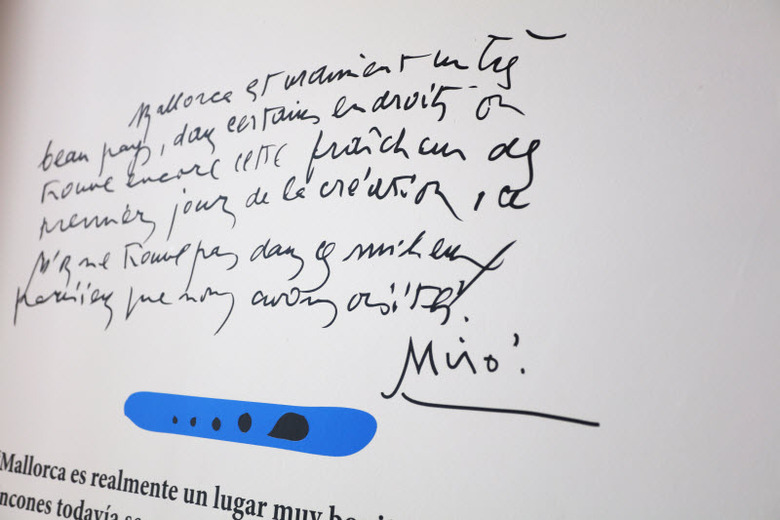 Mallorca est vraiment un très
beau pays, dans certains endroits on
trouve encore cette fraîcheur des
premiers jours de la création, ce
ne trouve pas dans ces milieux
parisiens que nous avons visités.
Miró.
Mallorca es realmente un lugar muy
ncones todavía